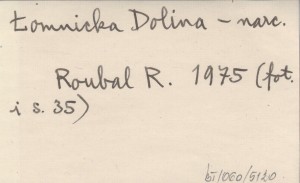 Łomnicka Dolina – narc.
Roubal R. 1975 (fot.
i s. 35)
bT/060/5120